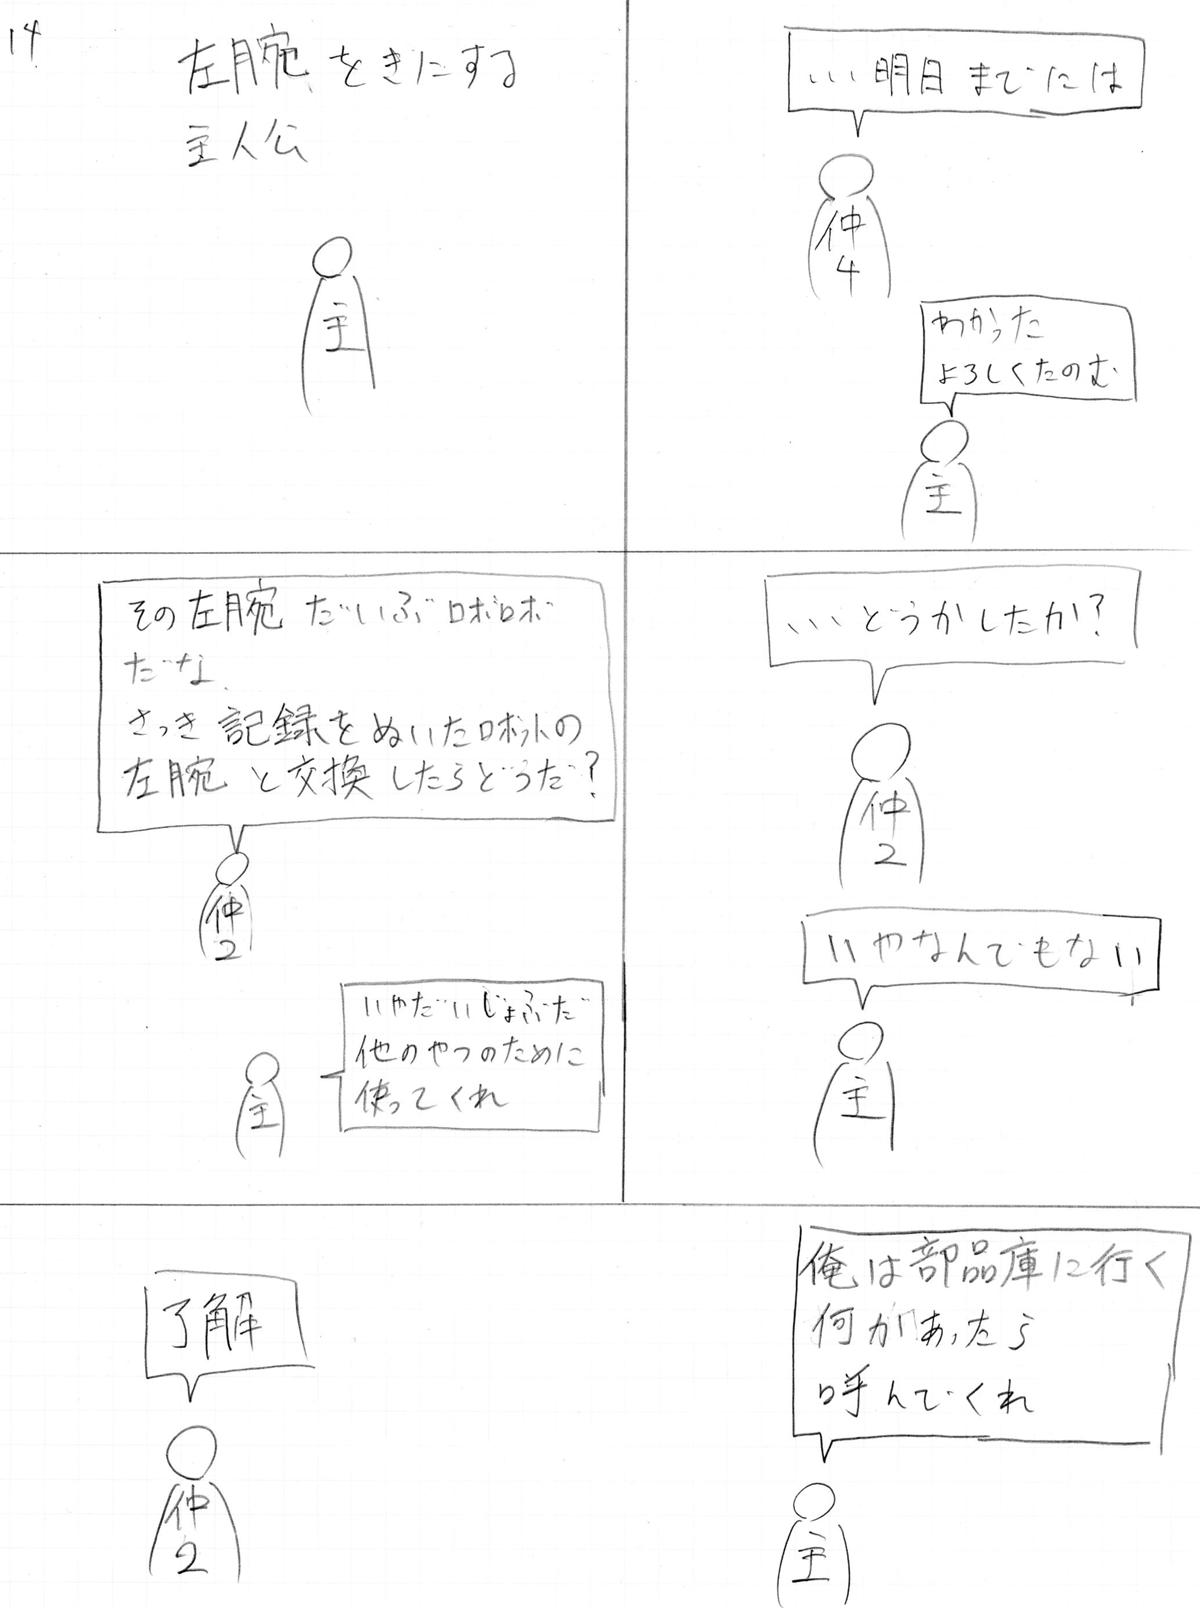 14
…明日までには
仲
4
わかった
よろしくたのむ
主
左腕をきにする
主人公
主
…どうかしたか？
仲
2
いやなんでもない
主
その左腕だいぶボロボロ
だな
さっき記録をぬいたロボットの
左腕と交換したらどうだ？
仲
2
いやだいじょぶだ
他のやつのために
使ってくれ
主
俺は部品庫に行く
何かあったら
呼んでくれ
主
了解
仲
2